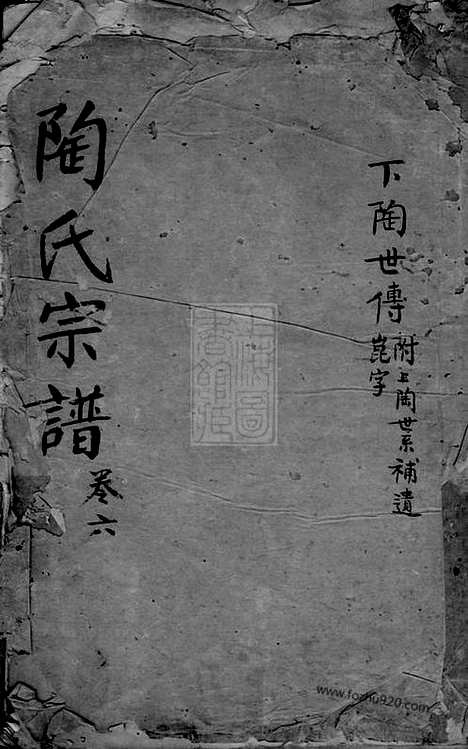 下陶世傳
崑字
附上陶世系補遺
陶氏宗譜
卷六
上海圖書館藏
www.fozhu920.com